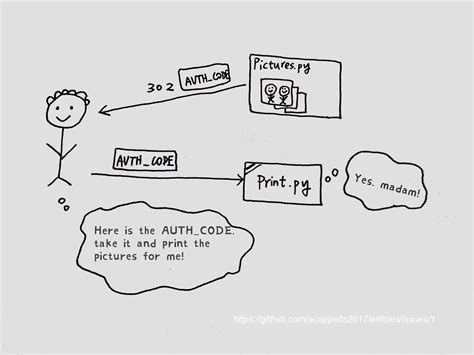 Pictures.py
302
AUTH_CODE
AUTH_CODE
Print.py
Yes, madam!
Here is the AUTH_CODE,
take it and print the
pictures for me!
https://github.com/acappella2017/articles/issues/1